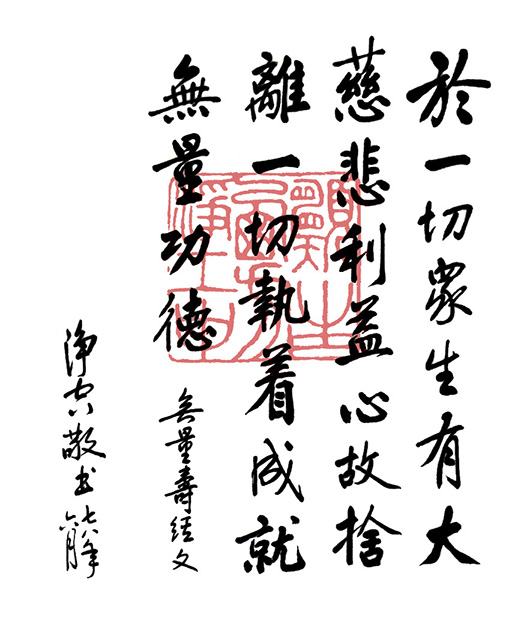 於一切眾生有大
慈悲利益心故捨
離一切執着成就
無量功德
無量壽經文
淨空敬书
願生西方淨土中